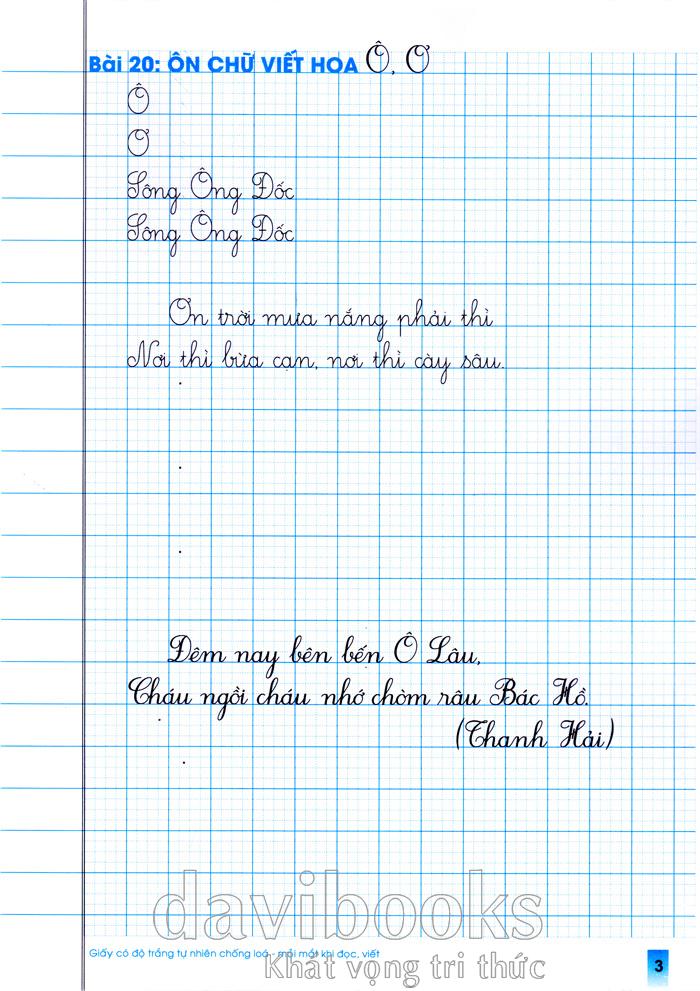 Bài 20: ÔN CHỮ VIẾT HOA Ô, Ơ
Ô
Ơ
Sông Ông Đốc
Sông Ông Đốc
Ơn trời mưa nắng phải thì
Nơi thì bừa cạn, nơi thì cày sâu.
Đêm nay bên bến Ô Lâu,
Cháu ngồi cháu nhớ chòm râu Bác Hồ.
(Thanh Hải)
davibooks
Giấy có độ trắng tự nhiên chống loá - mỏi mắt khi đọc, viết
Khát vọng tri thức
3